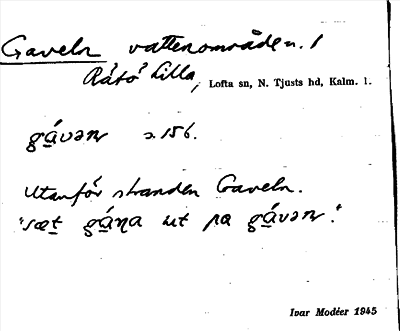 Gaveln vattenområde n. 1
Råsö Lilla, Lofta sn, N. Tjusts hd, Kalm. l.
gávəṇ s. 156.
Utanför stranden Gaveln.
"sæt gáṇa ut pa gávəṇ."
Ivar Modéer 1945